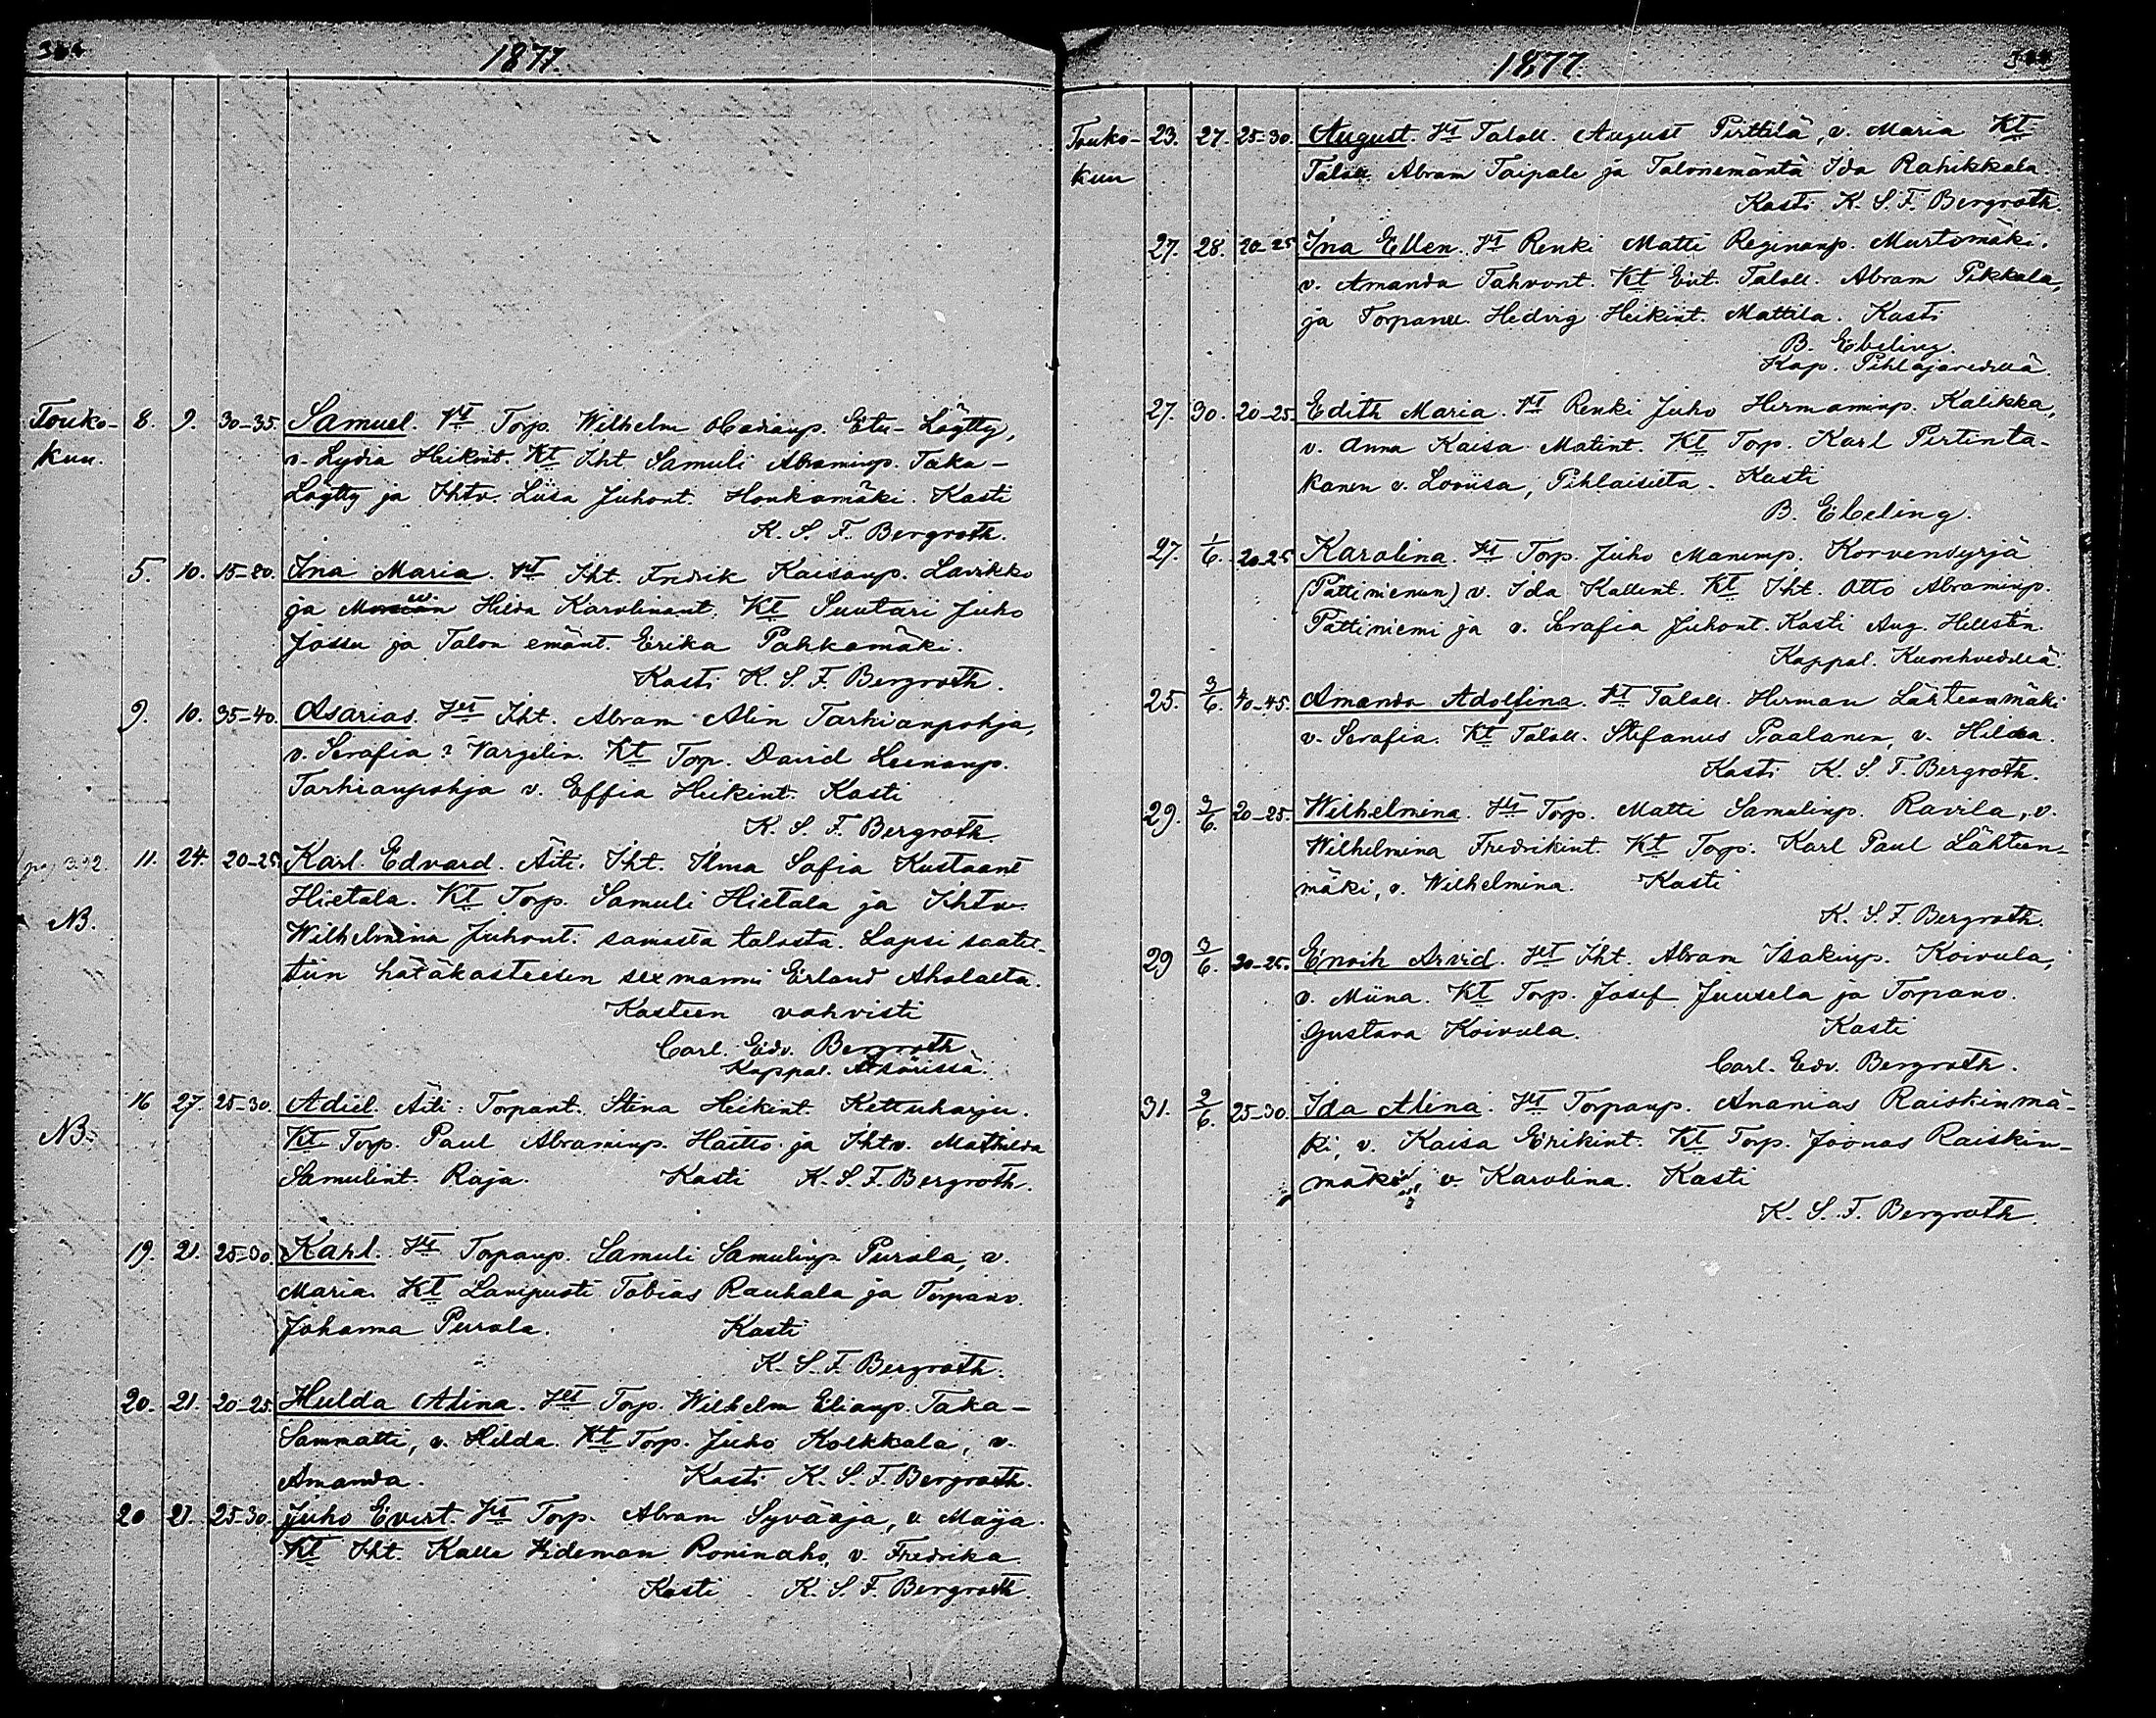 1877.
Touko- 8. 9. 30-35. Samuel. Vt Torp. Wilhelm Obadianp. Etu-Löytty,
kuu. v. Lydia Heikint. Kt Iht Samuli Abraminp. Taka-
Löytty ja Ihtv. Liisa Juhont. Honkamäki. Kasti
K. S. F. Bergroth.
5. 10. 15-20. Ina Maria. Vt Iht. Fredrik Kaisanp. Lavikko
ja Hilda Karolinant. Kt Suutari Juho
Jossu ja Talon emänt. Erika Pahkamäki.
Kasti K. S. F. Bergroth.
9. 10. 35-40. Asarias. Vt Iht. Abram Alin Tarhianpohja,
v. Serafia ? Vargelin. Kt Torp. David Leenanp.
Tarhianpohja v. Effia Heikint. Kasti
K. S. F. Bergroth.
11. 24. 20-25. Karl Edvard. Äiti. Iht. Ilma Sofia Kustaant
Hietala. Kt Torp. Samuli Hietala ja Ihtv.
NB. Wilhelmina Juhont. samasta talosta. Lapsi saatet-
tiin hätäkasteesen sexmanni Erland Aholalta.
Kasteen vahvisti
Carl. Edv. Bergroth
Kappal. Ätsärissä.
16 27. 25-30. Adiel. Äiti: Torpant. Stina Heikint. Kettuharju.
NB. Kt Torp. Paul Abraminp. Haitto ja Ihtv. Mathilda
Samulint. Raja. Kasti K. S. F. Bergroth.
19. 21. 25-30. Karl. Vt Torpanp. Samuli Samulinp. Purola, v.
Maria. Kt Lampuoti Tobias Rauhala ja Torpanv.
Johanna Purola. Kasti
K. S. F. Bergroth.
20. 21. 20-25. Hulda Alina. Vt Torp. Wilhelm Elianp. Taka-
Sammatti, v. Hilda. Kt Torp. Juho Kolkkala, v.
Amanda. Kasti K. S. F. Bergroth.
20 21. 25-30. Juho Evert. Vt Torp. Abram Syväoja, v. Maija.
Kt Iht. Kalle Hideman Roninaho, v. Fredrika
Kasti K. S. F. Bergroth.
1877.
Touko- 23. 27. 25-30. August. Vt Taloll. August Pirttilä, v. Maria Kt
kuu Taloll. Abram Taipale ja Talonemäntä Ida Rahikkala.
Kasti K. S. F. Bergroth.
27. 28. 20-25 Ina Ellen. Vt Renki Matti Reginanp. Murtomäki.
v. Amanda Tahvont. Kt Ent. Taloll. Abram Pikkala,
ja Torpanv. Hedvig Heikint. Mattila. Kasti
B. Ebeling.
Kap. Pihlajavedellä.
27. 30. 20-25. Edith Maria. Vt Renki Juho Hermaninp. Kalikka,
v. Anna Kaisa Matint. Kt Torp. Karl Pirtinta-
kanen v. Loviisa, Pihlaisista. Kasti
B. Ebeling.
27. 1/6. 20-25 Karolina. Vt Torp. Juho Manenp. Korvensyrjä
(Pättiniemen) v. Ida Kallent. Kt Iht. Otto Abraminp.
Pättiniemi ja v. Serafia Juhont. Kasti Aug. Hellstén.
Kappal. Kuorehvedellä.
25. 3/6. 40-45. Amanda Adolfina. Vt Taloll. Herman Lähteenmäki
v. Serafia. Kt Taloll. Stefanus Paalanen, v. Hilda.
Kasti K. S. F. Bergroth.
29. 3/6. 20-25. Wilhelmina. Vt Torp. Matti Samulinp. Ravila, v.
Wilhelmina Fredrikint. Kt Torp. Karl Paul Lähteen-
mäki, v. Wilhelmina. Kasti
K. S. F. Bergroth.
29 3/6. 20-25. Enoik Arvid. Vt Iht. Abram Isakinp. Koivula,
v. Miina. Kt Torp. Josef Juusela ja Torpanv.
Gustava Koivula. Kasti
Carl. Edv. Bergroth.
31. 3/6. 25-30. Ida Alina. Vt Torpanp. Ananias Raiskinmä-
ki, v. Kaisa Erikint. Kt Torp. Joonas Raiskin-
mäki, v. Karolina. Kasti
K. S. F. Bergroth.